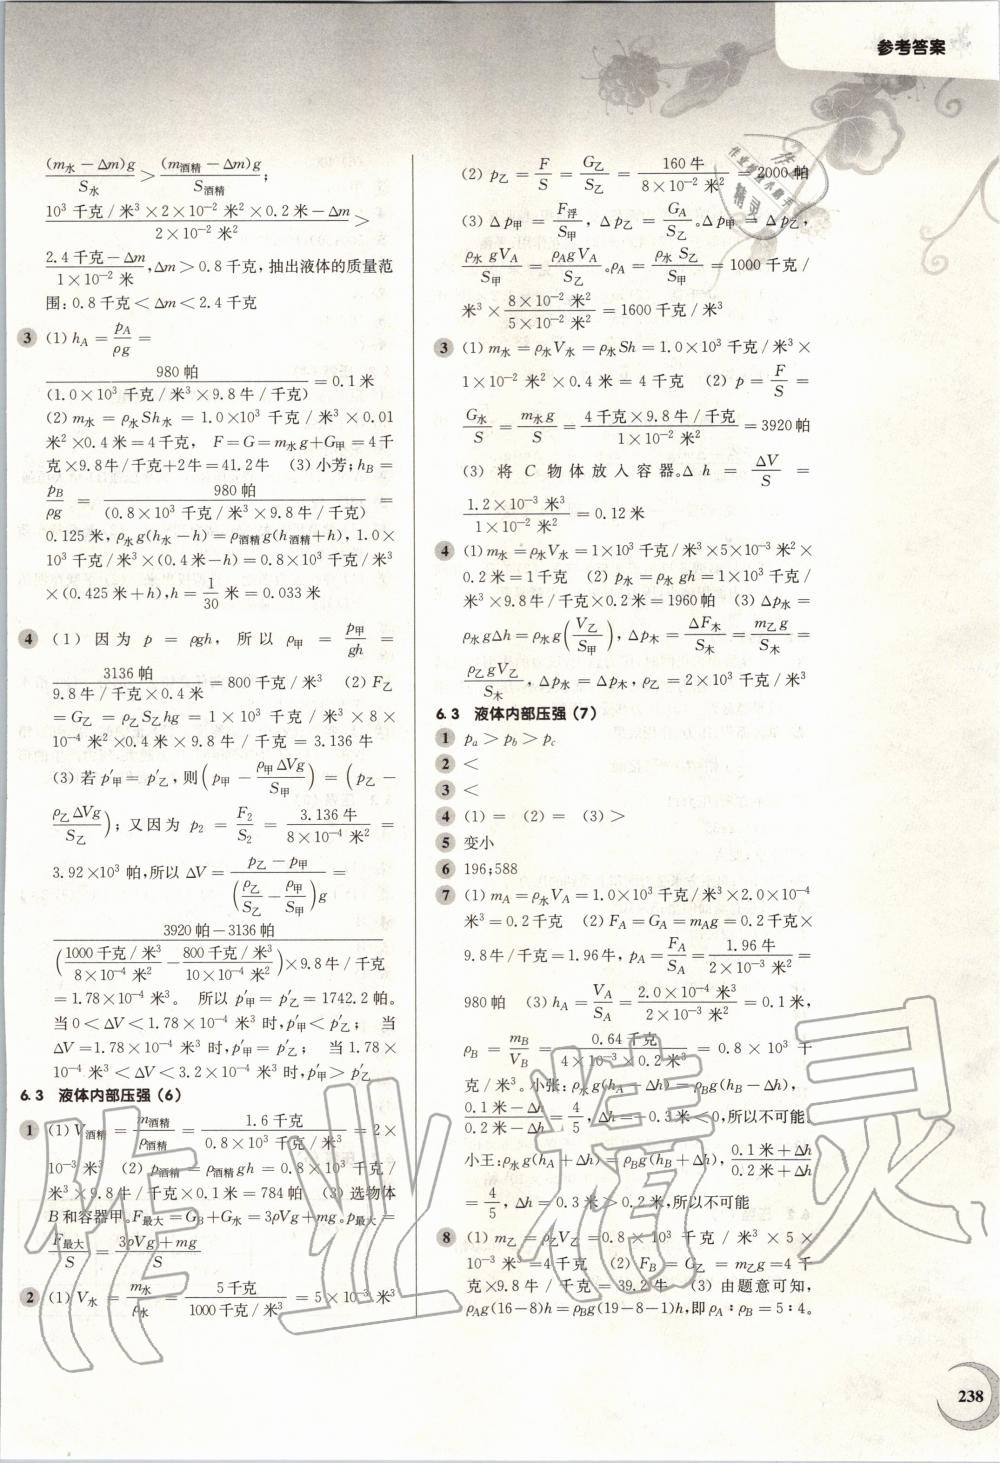 参考答案
(m水－Δm)g/S水 > (m酒精－Δm)g/S酒精;
10³千克/米³×2×10⁻²米²×0.2米－Δm/2×10⁻²米² >
2.4千克－Δm/1×10⁻²米,Δm>0.8千克,抽出液体的质量范
围:0.8千克<Δm<2.4千克
3 (1) hA = pA/ρg =
980帕/(1.0×10³千克/米³×9.8牛/千克) = 0.1米
(2) m水 = ρ水Sh水 = 1.0×10³千克/米³×0.01
米²×0.4米=4千克, F=G=m水g+G甲=4千
克×9.8牛/千克+2牛=41.2牛 (3)小芳;hB=
pB/ρg = 980帕/(0.8×10³千克/米³×9.8牛/千克) =
0.125米,ρ水g(h水－h)=ρ酒精g(h酒精+h),1.0×
10³千克/米³×(0.4米－h)=0.8×10³千克/米³
×(0.425米+h),h=1/30米=0.033米
4 (1) 因为 p = ρgh, 所以 ρ甲 = p甲/gh =
3136帕/9.8牛/千克×0.4米 =800千克/米³ (2) F乙
=G乙=ρ乙S乙hg=1×10³千克/米³×8×
10⁻⁴米²×0.4米×9.8牛/千克=3.136牛
(3)若p′甲=p′乙,则(p甲－ρ甲ΔVg/S甲)=(p乙－
ρ乙ΔVg/S乙); 又因为 p₂ = F₂/S₂ = 3.136牛/8×10⁻⁴米² =
3.92×10³帕,所以ΔV= p乙－p甲/(ρ乙/S乙－ρ甲/S甲)g =
3920帕－3136帕/(1000千克/米³/8×10⁻⁴米²－800千克/米³/10×10⁻⁴米²)×9.8牛/千克
=1.78×10⁻⁴米³。 所以p′甲=p′乙=1742.2帕。
当0<ΔV<1.78×10⁻⁴米³时,p′甲<p′乙; 当
ΔV=1.78×10⁻⁴米³时,p′甲=p′乙; 当1.78×
10⁻⁴米³<ΔV<3.2×10⁻⁴米³时,p′甲>p′乙
6.3 液体内部压强(6)
1 (1) V酒精 = m酒精/ρ酒精 = 1.6千克/0.8×10³千克/米³ = 2×
10⁻³米³ (2) p酒精=ρ酒精gh=0.8×10³千克/
米³×9.8牛/千克×0.1米=784帕 (3)选物体
B和容器甲。F最大=GB+G水=3ρVg+mg。p最大=
F最大/S = 3ρVg+mg/S
2 (1) V水 = m水/ρ水 = 5千克/1000千克/米³ = 5×10⁻³米³
(2) p乙 = F/S = G乙/S乙 = 160牛/8×10⁻²米² = 2000帕
(3) Δp甲 = F浮/S甲, Δp乙 = GA/S乙。Δp甲 = Δp乙,
ρ水gVA/S甲 = ρAgVA/S乙。ρA = ρ水S乙/S甲 = 1000千克/
米³ × 8×10⁻²米²/5×10⁻²米² = 1600千克/米³
3 (1) m水=ρ水V水=ρ水Sh=1.0×10³千克/米³×
1×10⁻²米²×0.4米=4千克 (2) p = F/S =
G水/S = m水g/S = 4千克×9.8牛/千克/1×10⁻²米² =3920帕
(3) 将C物体放入容器。Δh = ΔV/S =
1.2×10⁻³米³/1×10⁻²米² = 0.12米
4 (1)m水=ρ水V水=1×10³千克/米³×5×10⁻³米²×
0.2米=1千克 (2) p水=ρ水gh=1×10³千克/
米³×9.8牛/千克×0.2米=1960帕 (3) Δp水=
ρ水gΔh=ρ水g(V乙/S甲), Δp木 = ΔF木/S木 = m乙g/S木 =
ρ乙gV乙/S木, Δp水=Δp木,ρ乙=2×10³千克/米³
6.3 液体内部压强(7)
1 pa>pb>pc
2 <
3 <
4 (1)= (2)= (3)>
5 变小
6 196;588
7 (1) mA=ρ水VA=1.0×10³千克/米³×2.0×10⁻⁴
米³=0.2千克 (2) FA=GA=mAg=0.2千克×
9.8牛/千克=1.96牛, pA = FA/SA = 1.96牛/2×10⁻³米² =
980帕 (3) hA = VA/SA = 2.0×10⁻⁴米³/2×10⁻³米² = 0.1米,
ρB = mB/VB = 0.64千克/4×10⁻³×0.2米³ = 0.8×10³千
克/米³。小张:ρ水g(hA－Δh)=ρBg(hB－Δh),
0.1米－Δh/0.2米－Δh = 4/5,Δh=－0.3米<0,所以不可能。
小王:ρ水g(hA+Δh)=ρBg(hB+Δh), 0.1米+Δh/0.2米+Δh
= 4/5, Δh=0.3米>0.2米,所以不可能
8 (1) m乙=ρ乙V乙=0.8×10³千克/米³×5×
10⁻³米³=4千克 (2) FB=G乙=m乙g=4千
克×9.8牛/千克=39.2牛 (3) 由题意可知,
ρAg(16－8)h=ρBg(19－8－1)h,即ρA:ρB=5:4。
238
作业精灵